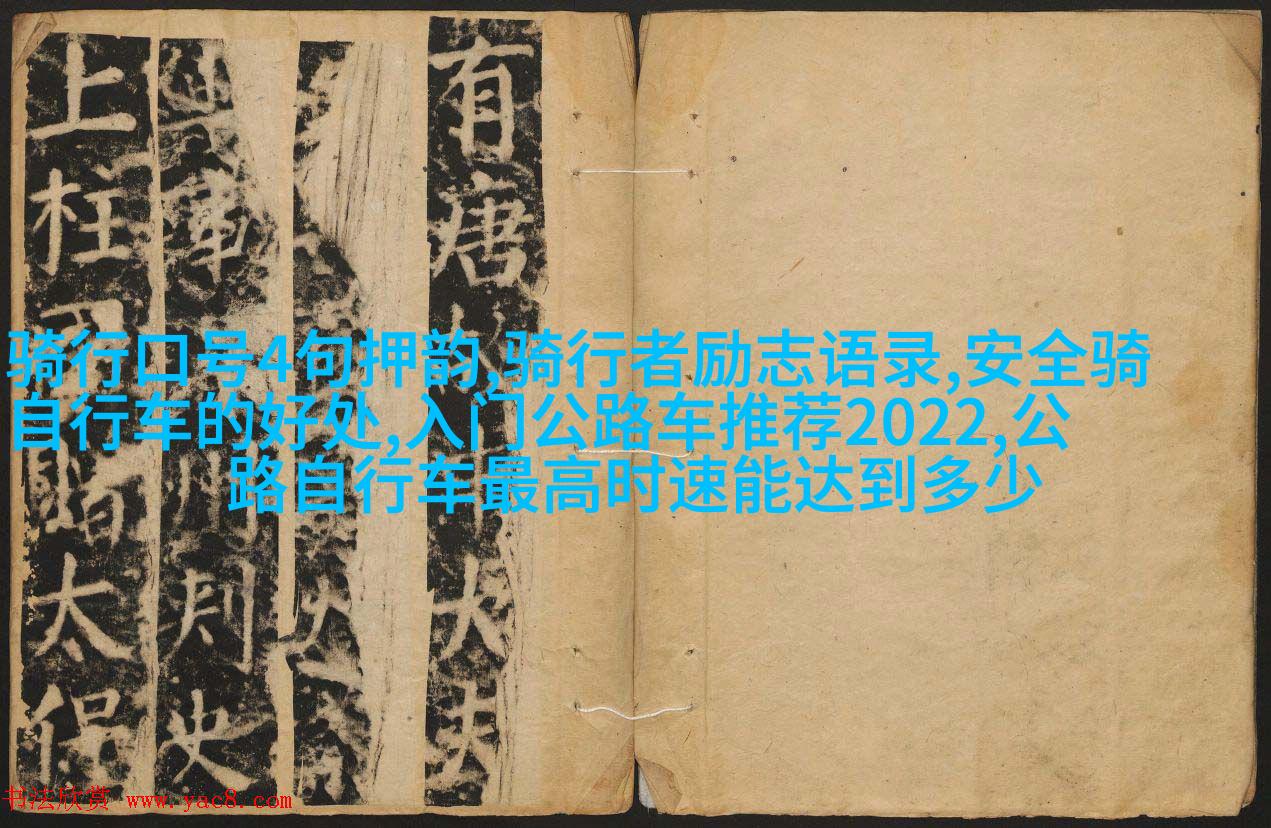 有唐大夫
軍州刺史
上柱國贈太保
骑行口号4句押韵,骑行者励志语录,安全骑
自行车的好处,入门公路车推荐2022,公
路自行车最高时速能达到多少
书法欣赏 www.yac8.com